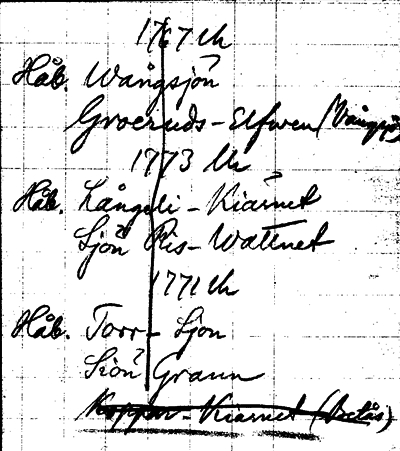 1767 Uh
Håb. Wångsjön
Groeruds-Elfwen (Vångsjö
1773 Uh
Håb. Långeli-Kiärnet
Sjön Ris-Wattnet
1771 Uh
Håb. Torr-Sjön
Siön Grann
Koppar-Kiärnet (Betås)